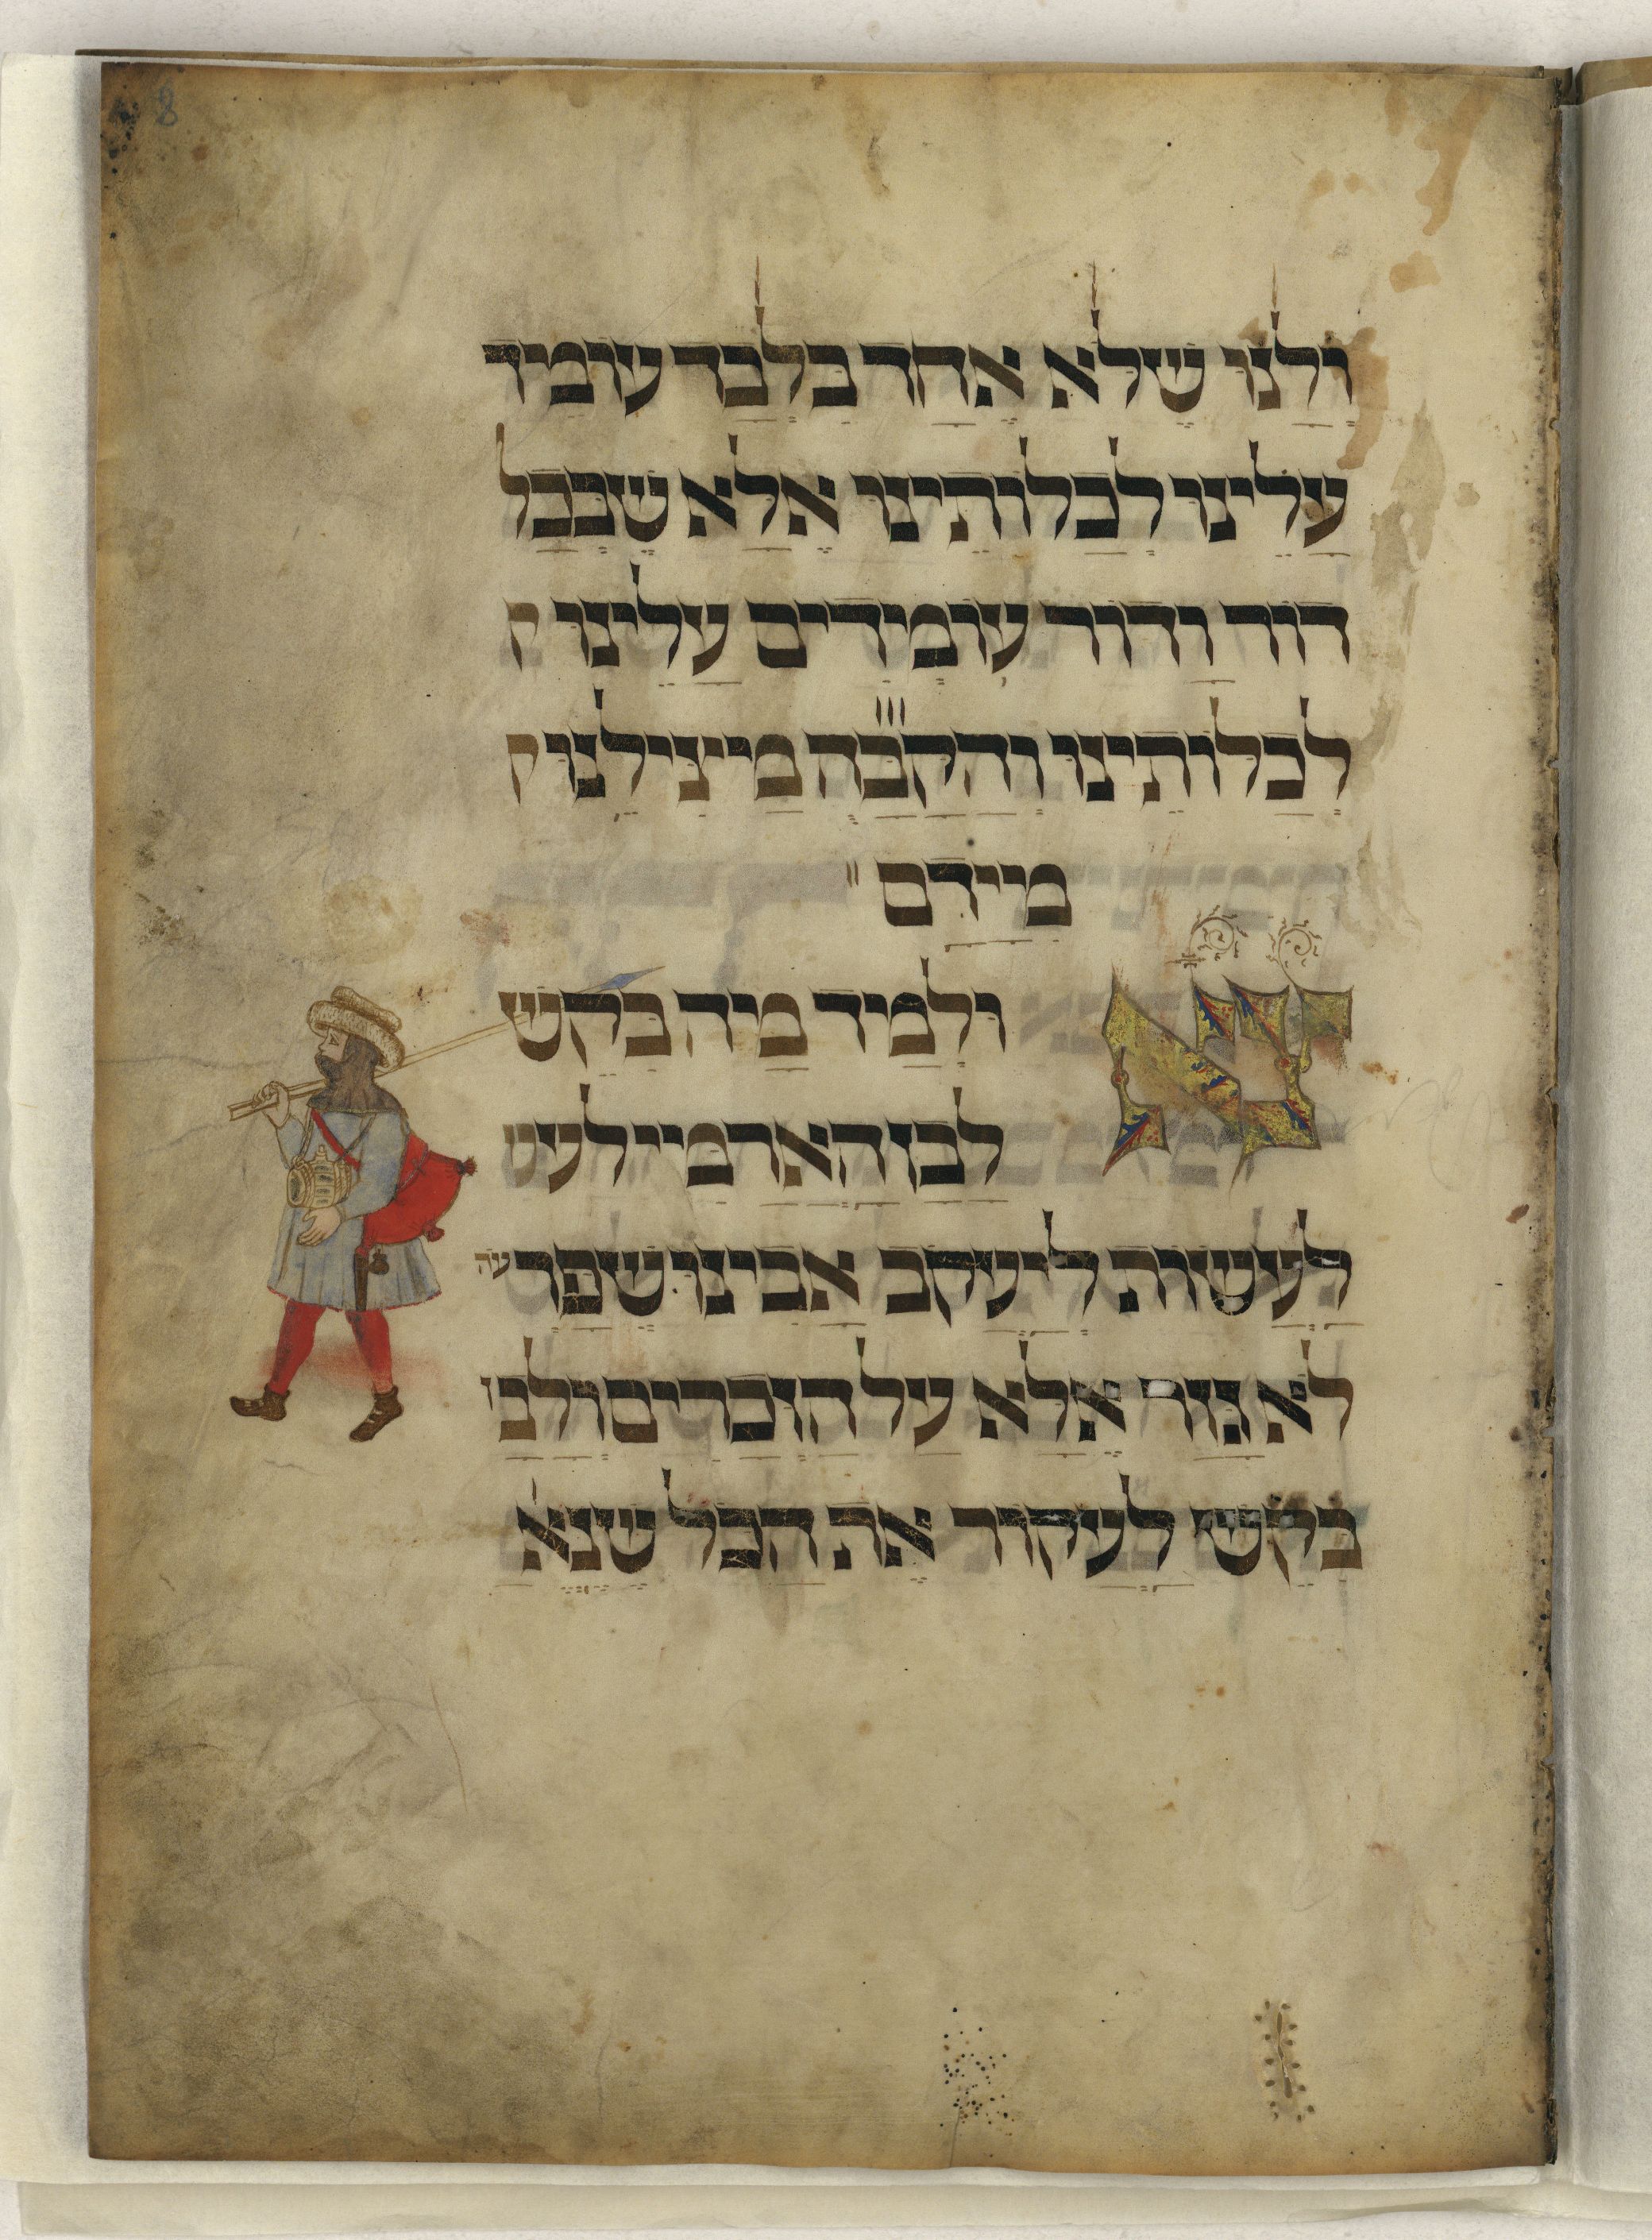 8
ולנו שלא אחד בלבד עומיד
עלינו לכלותינו אלא שבכל
דור ודור עומידים עלינו
לכלותינו והקבה מיצילנו
מיידם
צא ולמיד מיה בקש
לבן הארמיי לעש
לעשות ליעקב אבינו שפר עה
לא גזר אלא על הזכרים ולבן
בקש לעקור את הכל שנא